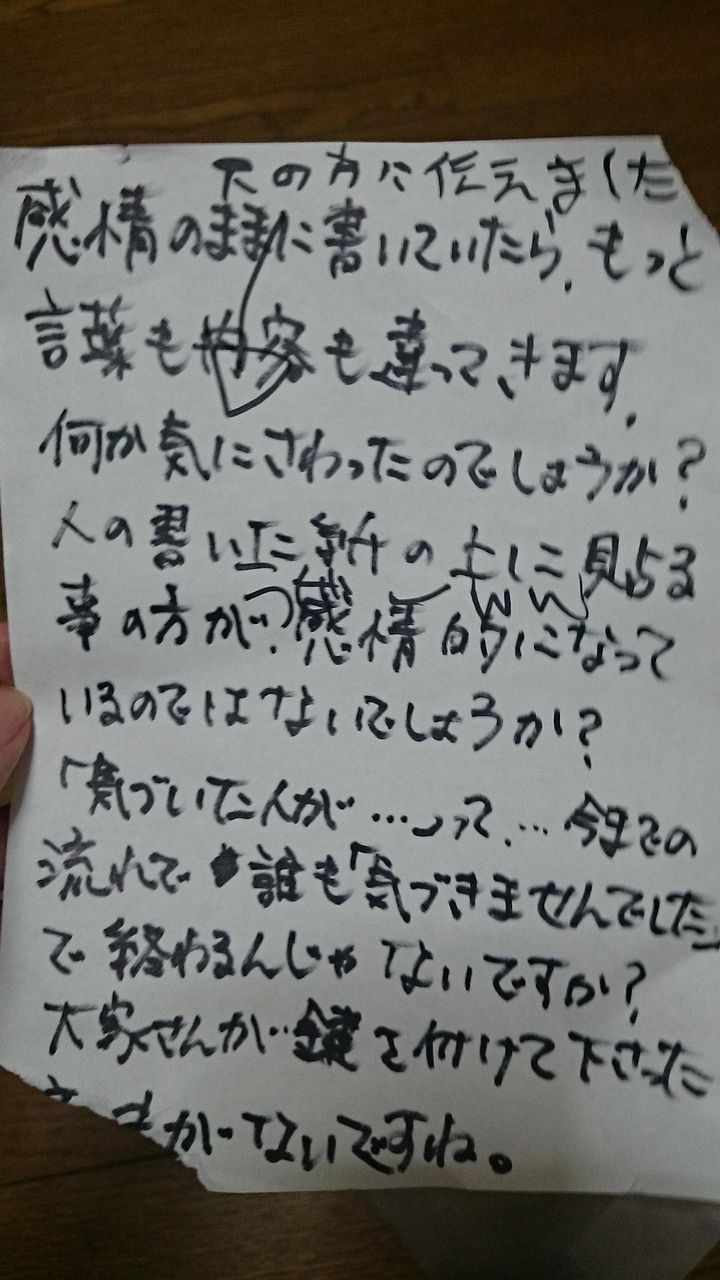 下の方に伝えました
感情のままに書いていたら、もっと
言葉も内容も違ってきます。
何か気にさわったのでしょうか?
人の書いた紙の上に見られる
事の方が、感情的になって
いるのではないでしょうか?
「気づいた人が…って…今までの
流れで誰も「気づきませんでした」
で終わるんじゃないですか?
大家さんが鎖を付けて下さった
がないですね。